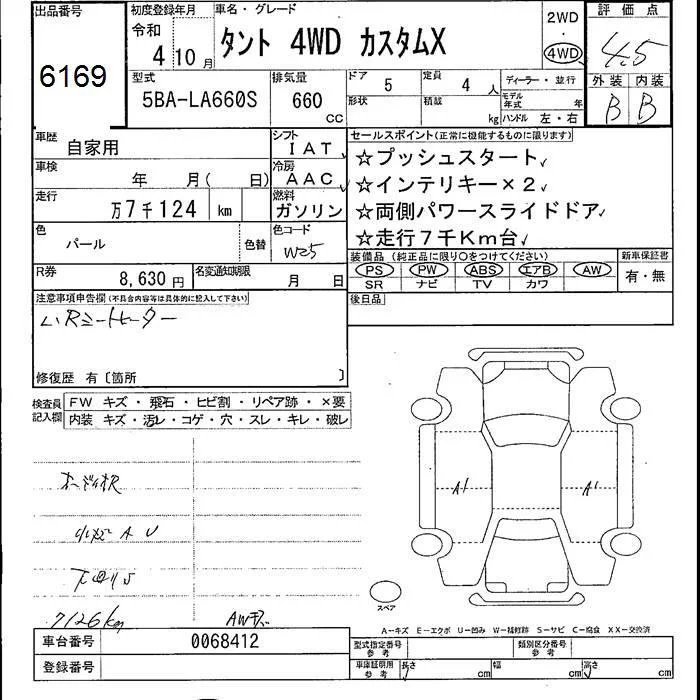 出品番号
6169
初度登録年月
令和
4 10月
車名・グレード
タント 4WD カスタムX
2WD
・
4WD
評価点
4.5
外装 内装
B B
型式
5BA-LA660S
排気量
660
CC
ドア
5
定員
4 人
形状
積載
kg
ディーラー・並行
モデル年式 年
ハンドル 左・右
車歴
自家用
シフト
IAT
車検
年 月( 日)
冷房
AAC
走行
万7千124 km
燃料
ガソリン
色
パール
色替
色コード
W25
R券
8,630円
名変通知期限
月 日
セールスポイント(正常に機能するものに限ります)
☆プッシュスタート
☆インテリキー×2
☆両側パワースライドドア
☆走行7千Km台
装備品(純正品に限り○をつけてください)
PS PW ABS エアB AW
SR ナビ TV カワ
新車保証書
有・無
後日品
注意事項申告欄(不具合内容等は具体的に記入して下さい)
修復歴 有〔箇所 〕
検査員記入欄
FW キズ・飛石・ヒビ割・リペア跡・×要
内装 キズ・汚レ・コゲ・穴・スレ・キレ・破レ
A U
7126km
AWキズ
A1
A1
スペア
A−キズ E−エクボ U−凹み W−補修跡 S−サビ C−腐食 XX−交換済
車台番号
0068412
登録番号
型式指定番号
参考
類別区分番号
参考
車庫証明用
参考
長さ
cm
幅
cm
高さ
cm